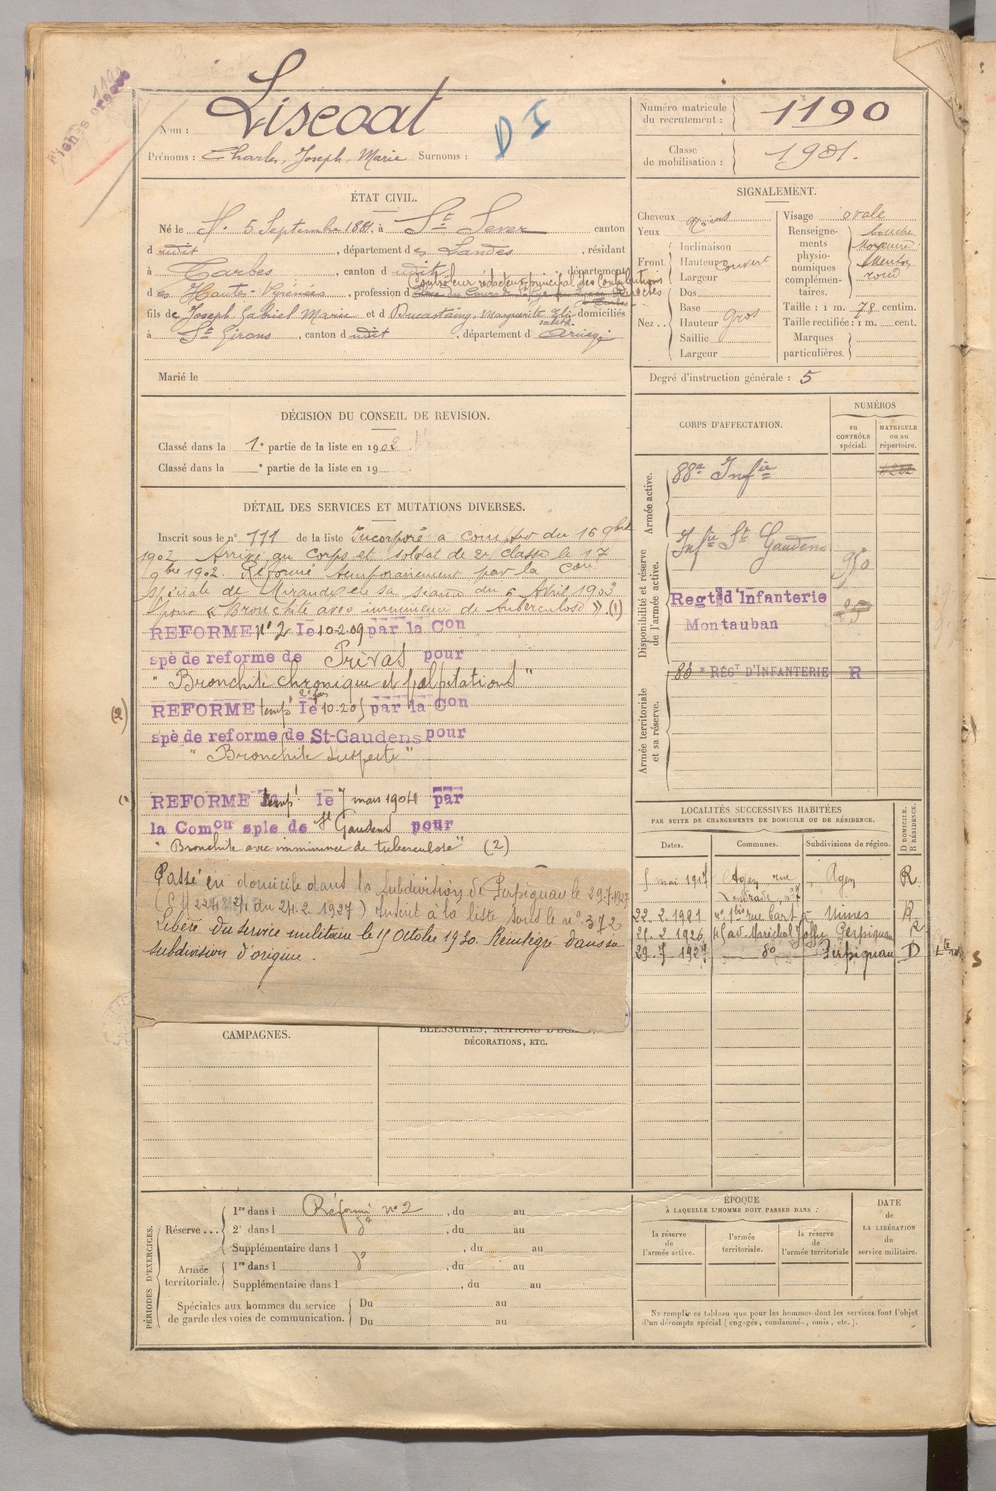 Fiches organes
Nom : Liscoat
D I
Prénoms : Charles, Joseph, Marie Surnoms :
Numéro matricule du recrutement : 1190
Classe de mobilisation : 1901.
ÉTAT CIVIL.
Né le 5 Septembre 1881 à St Sever canton
d udit , département des Landes , résidant
à Tarbes , canton d udit , département
Controleur rédacteur principal des Contributions
des Hautes-Pyrénées , profession d
fils de Joseph Gabriel Marie et d Ducastaing, Marguerite domiciliés
à St Girons , canton d udit , département d Ariège
Marié le
SIGNALEMENT.
Cheveux
Yeux
Front. Inclinaison
Hauteur couvert
Largeur
Nez Dos
Base
Hauteur gros
Saillie
Largeur
Visage ovale
Renseignements physionomiques complémentaires. bouche moyenne menton rond
Taille : 1 m. 78 centim.
Taille rectifiée : 1 m. cent.
Marques particulières.
Degré d'instruction générale : 5
DÉCISION DU CONSEIL DE REVISION.
Classé dans la 1e partie de la liste en 1902
Classé dans la e partie de la liste en 19
DÉTAIL DES SERVICES ET MUTATIONS DIVERSES.
Inscrit sous le n° 111 de la liste Incorporé à compter du 16 9bre
1902 Arrivé au Corps et soldat de 2e classe le 17
9bre 1902. Réformé temporairement par la Con
spéciale de Mirande en sa séance du 6 Avril 1903
pour « Bronchite avec imminence de tuberculose » (1)
REFORME n° 2 le 10.2.09 par la Con
spè de reforme de Privas pour
" Bronchite chronique et palpitations "
REFORME temp' le 10.2.05 par la Con
spè de reforme de St-Gaudens pour
" Bronchite suspecte "
REFORME temp' le 7 mars 1904 par
la Comon sple de St Gaudens pour
" Bronchite avec imminence de tuberculose " (2)
Passé en domicile dans la subdivision de Perpignan le 29.7.1927
du 24.2.1927) Inscrit à la liste sous le n° 372
Libéré du service militaire le 15 Octobre 1930. Réintégré dans sa
subdivision d'origine.
CORPS D'AFFECTATION.
NUMÉROS
au contrôle spécial.
MATRICULE ou au répertoire.
Armée active.
88e Infie
Disponibilité et réserve de l'armée active.
Infie St Gaudens 950
Regt d'Infanterie
Montauban
Armée territoriale et sa réserve.
83e REGt D'INFANTERIE R
LOCALITÉS SUCCESSIVES HABITÉES
PAR SUITE DE CHANGEMENTS DE DOMICILE OU DE RÉSIDENCE.
Dates. Communes. Subdivisions de région. D DOMICILE. R RÉSIDENCE.
mai 1917 Agen rue Agen R.
22.2.1921 rue Bart Nimes R
21.2.1926 av. Maréchal Joffre Perpignan R
29.7.1927 do Perpignan D
CAMPAGNES.
BLESSURES, ACTIONS D'ÉCLAT,
DÉCORATIONS, ETC.
PÉRIODES D'EXERCICES.
Réserve ... 1re dans l Réformé n° 2 , du au
2e dans l do , du au
Supplémentaire dans l , du au
Armée territoriale. 1re dans l do , du au
Supplémentaire dans l , du au
Spéciales aux hommes du service de garde des voies de communication. Du au
Du au
ÉPOQUE
À LAQUELLE L'HOMME DOIT PASSER DANS :
la réserve de l'armée active.
l'armée territoriale.
la réserve de l'armée territoriale
DATE de LA LIBÉRATION du service militaire.
Ne remplir ce tableau que pour les hommes dont les services font l'objet
d'un décompte spécial (engagés, condamnés, omis, etc.).